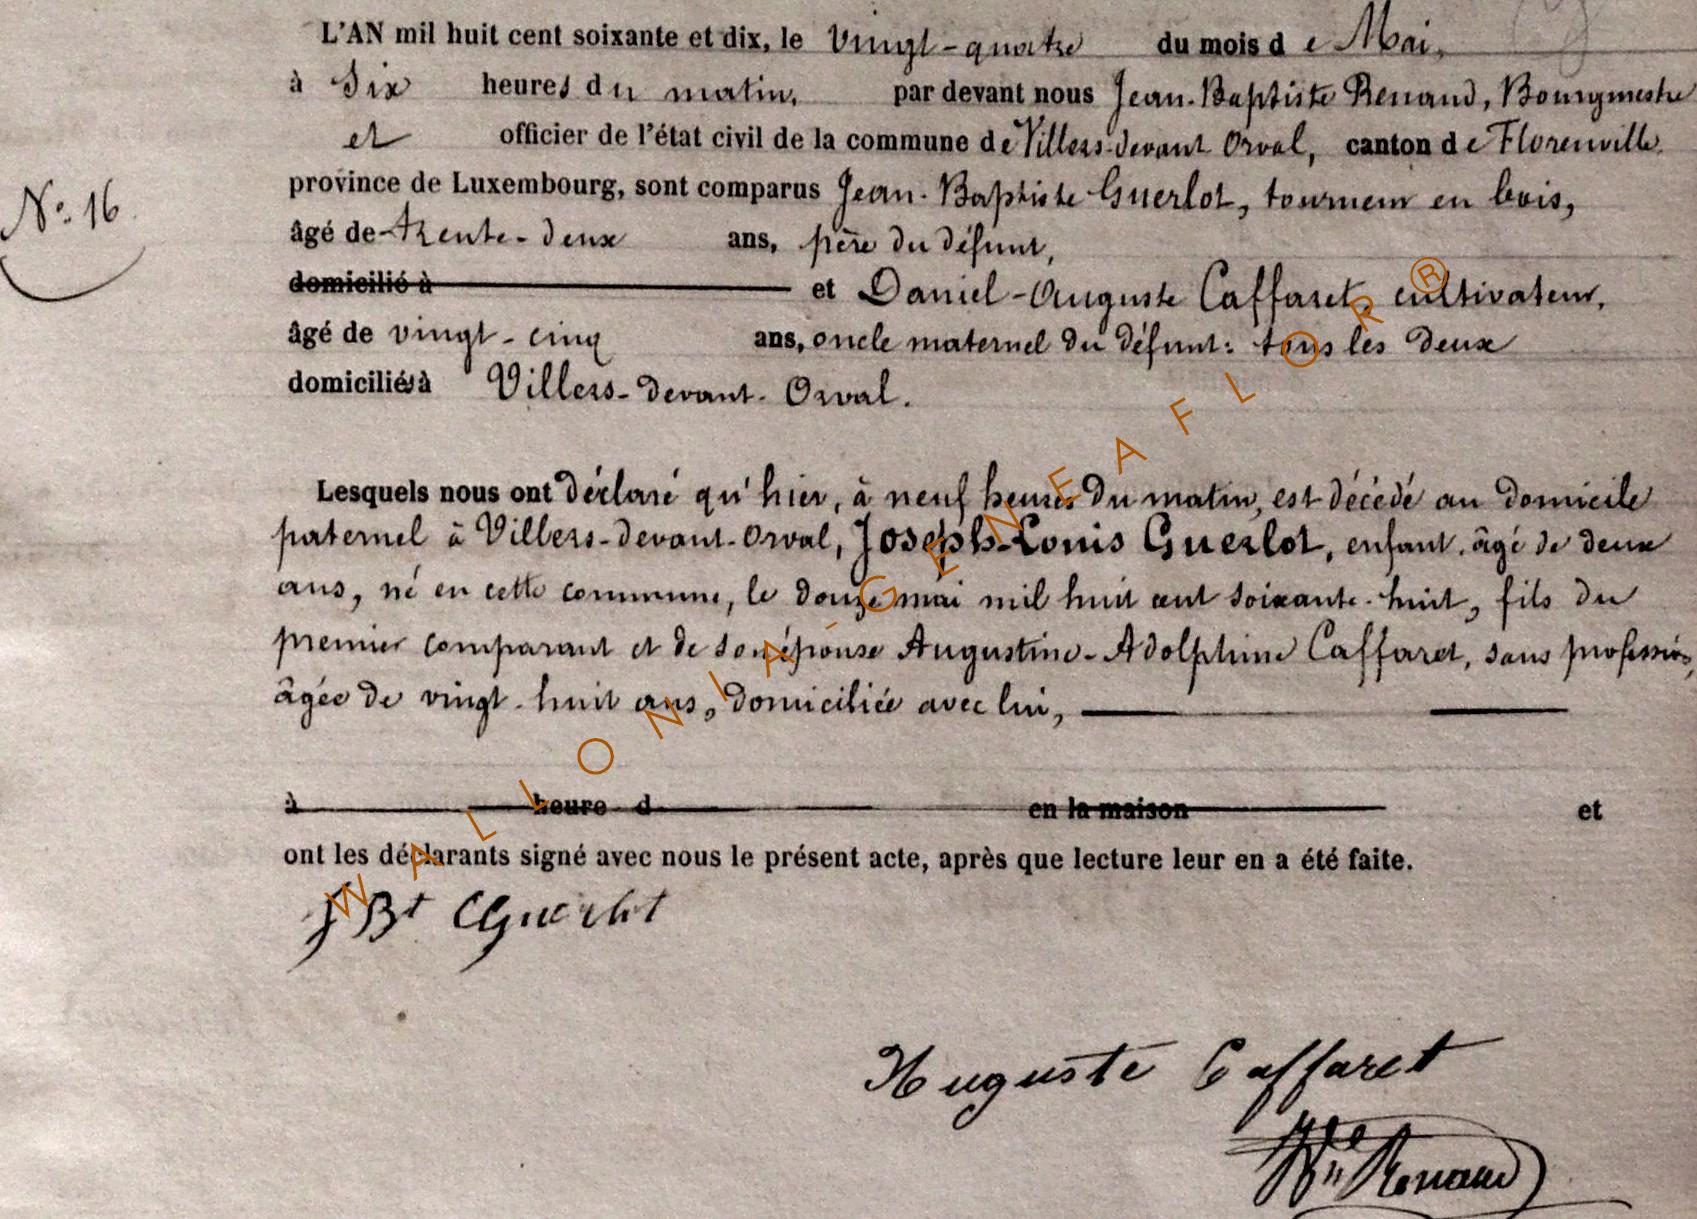 L'AN mil huit cent soixante et dix, le vingt-quatre du mois de Mai,
à Six heures du matin, par devant nous Jean-Baptiste Renaud, Bourgmestre
et officier de l'état civil de la commune de Villers-devant Orval, canton de Florenville,
province de Luxembourg, sont comparus Jean-Baptiste Guerlot, tourneur en bois,
N°. 16
âgé de trente-deux ans, père du défunt,
domicilié à et Daniel-Auguste Caffaret, cultivateur,
âgé de vingt-cinq ans, oncle maternel du défunt: tous les deux
domiciliés à Villers-devant-Orval.
Lesquels nous ont déclaré qu'hier, à neuf heures du matin, est décédé au domicile
paternel à Villers-devant-Orval, Joseph-Louis Guerlot, enfant âgé de deux
ans, né en cette commune, le douze mai mil huit cent soixante-huit, fils du
premier comparant et de son épouse Augustine-Adolphine Caffaret, sans profession,
âgée de vingt-huit ans, domiciliée avec lui,
à heure d en la maison et
ont les déclarants signé avec nous le présent acte, après que lecture leur en a été faite.
J Bt Guerlot
Auguste Caffaret
Renaud
WALLONIA-GENEAFLOR®